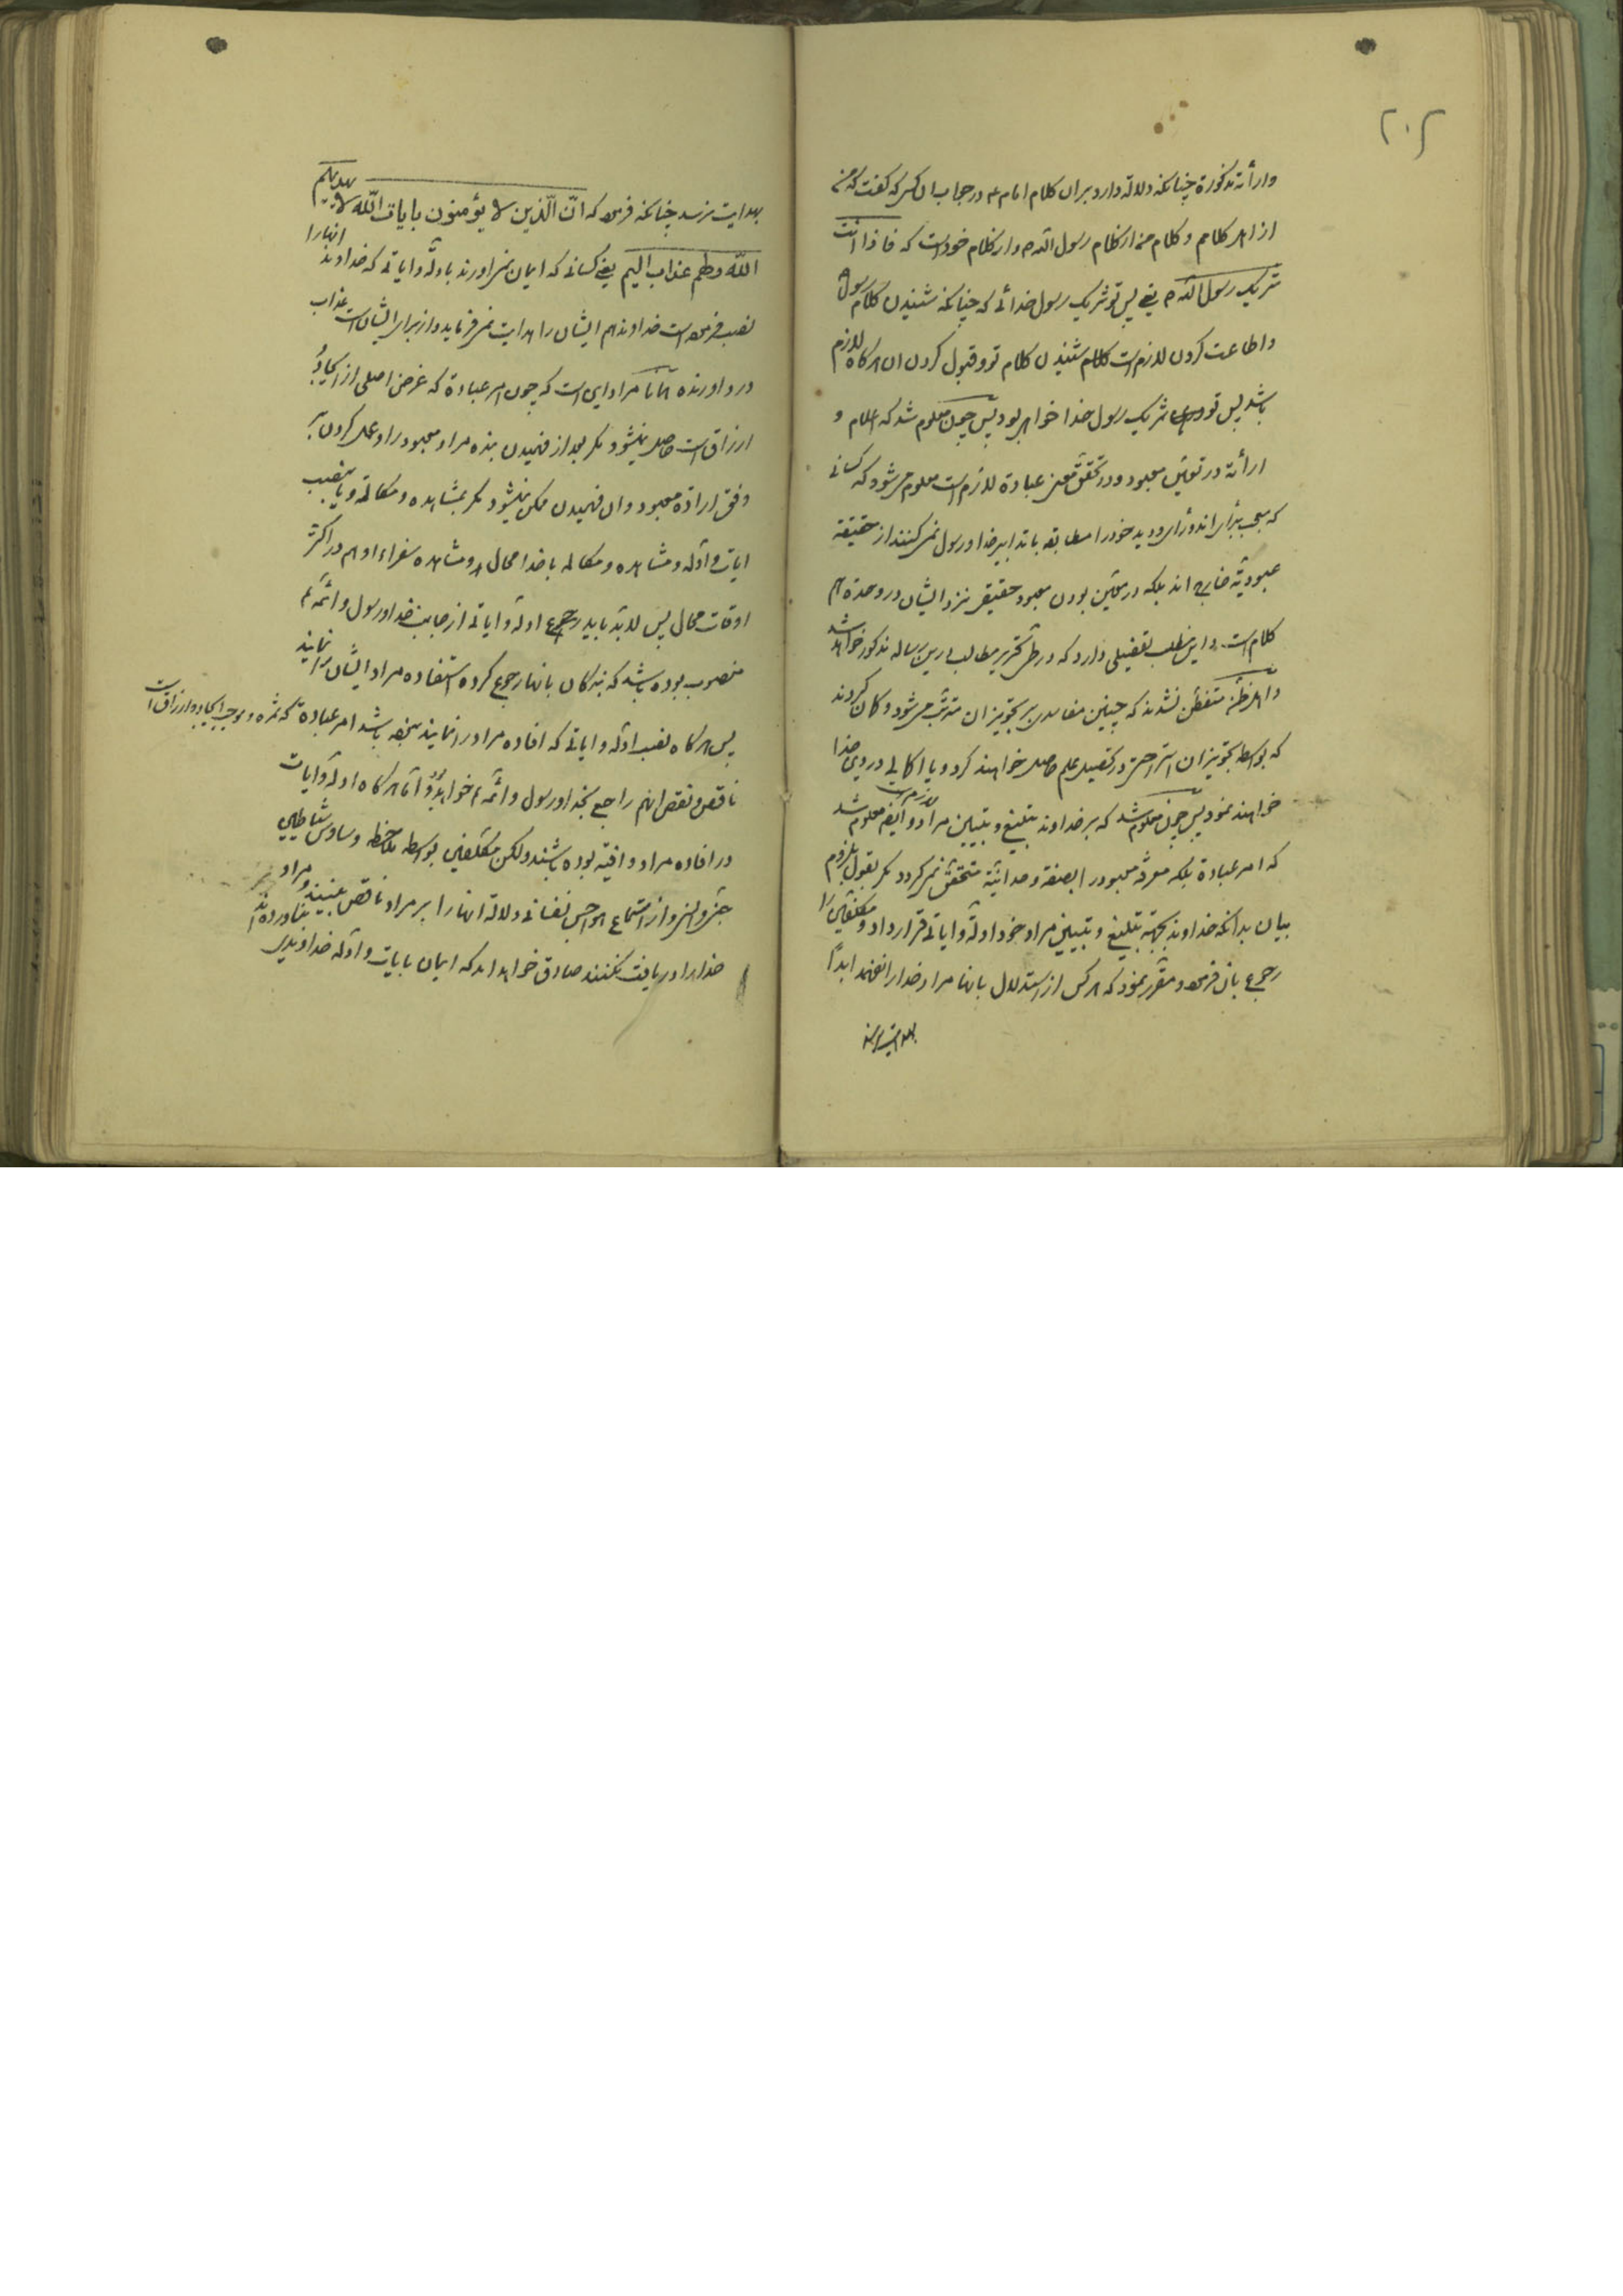 ۲۰۲
وارأته مذکورة چنانکه دلالة دارد بران کلام امام ع در جواب ان کسی که گفت که من
از اهل کلامم و کلام من از کلام رسول الله ص و از کلام خود است که فاذا انت
شریک رسول الله ص یعنی پس تو شریک رسول خدائی که چنانکه شنیدن کلام رسول
و اطاعت کردن لازم است شنیدن کلام تو و قبول کردن ان هرکاه لازم
باشد پس تو شریک رسول خدا خواهی بود پس چون معلوم شد که اعلام و
ارأته در تعیین معبود و در تحقق معنی عبادة لازم است معلوم می شود که کسانی
که رای و دید خود را مطابقه با تدابیر خدا و رسول نمی کنند از حقیقة
عبودیّة خارج اند بلکه در معین بودن معبود حقیقی نزد ایشان در وحدة هم
کلام است و این مطلب تفصیلی دارد که در طی تحریر مطالب این رساله مذکور خواهد شد
و اهل ظنّ متفطّن نشدند که چنین مفاسدی بر تجویز ان مترتّب می شود و کمان کردند
که بواسطه تجویز ان استراحتی در تحصیل علم حاصل خواهند کرد و یا اکمالی در دین خدا
خواهند نمود پس چون معلوم شد که بر خداوند تبلیغ و تبیین مراد لازم است و ایضا معلوم شد
که امر عبادة بلکه معرفة معبود را بصفة وحدانیّة متحقّق نمی کردد مکر بقول بلزوم
بیان بدانکه خداوند بجهة تبلیغ و تبیین مراد خود ادلّه و ایاتی قرار داد و مکلفین را
رجوع بان فرمود و مقرّر نمود که هرکس از استدلال بانها مراد خدا را نفهمد ابداً
بهدایت نرسد
بهدایت نرسد چنانکه فرموده که انّ الّذین لا یؤمنون بایات اللّه لا یهدیهم
اللّه و لهم عذاب الیم یعنی کسانی که ایمان نمی اورند بادلّه و ایاتی که خداوند انها را
نصب فرموده است خداوند هم ایشان را هدایت نمی فرماید و از برای ایشان است عذاب
درد اورنده مراد این است که چون امر عبادة که غرض اصلی از ایجاد و
ارزاق است حاصل نمیشود مکر بعد از فهمیدن بنده مراد معبود را و عمل کردن بر
وفق ارادة معبود و ان فهمیدن ممکن نمیشود مکر بمشاهده و مکالمه و یا بنصب
ایات و ادلّه و مشاهده و مکالمه با خدا محال و مشاهده سفراء او هم در اکثر
اوقات محال پس لابدّ باید رجوع ادلّه و ایاتی از جانب خدا و رسول و ائمّه ع
منصوب بوده باشد که بندکان بانها رجوع کرده استفاده مراد ایشان را نمایند
پس هرکاه نصب ادلّه و ایاتی که افاده مراد را نمایند نبوده باشد امر عبادة که ثمره و موجب ایجاد و ارزاق است
ناقص و نقص انهم راجع بخدا و رسول و ائمّه ع خواهد بود و امّا هرکاه ادلّه و ایات
در افاده مراد وافیه بوده باشند ولکن مکلفین بواسطه ملاحظه وساوس شیاطین
جنّ و انس و از استماع هواجس نفسانی دلالة انها را بر مراد ناقص بینند و مراد
خدا را دریافت نکنند صادق خواهد امد که ایمان بایات و ادلّه خداوندی نیاورده اند